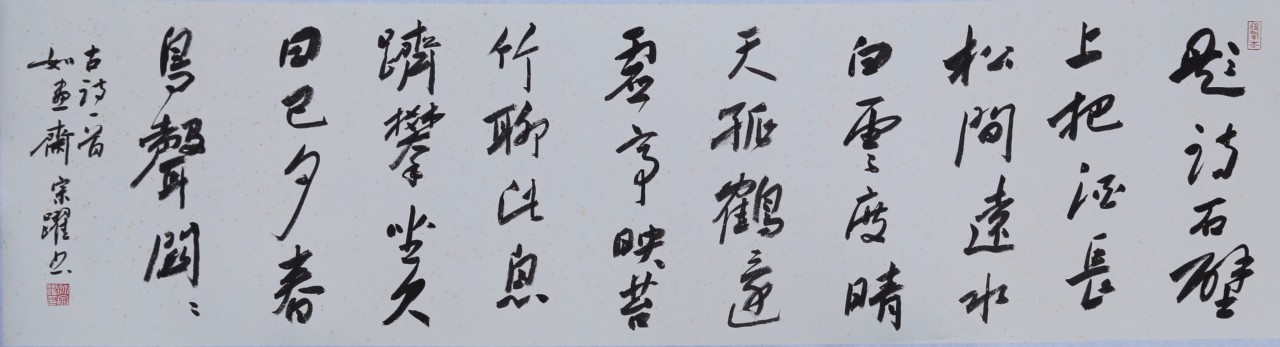 題詩石壁
上把酒長
松間遠水
白雲度晴
天孤鶴還
虛亭映苔
竹聊此息
躋攀坐久
日已夕春
鳥聲關〻
古詩一首
如畫齋宗躍书